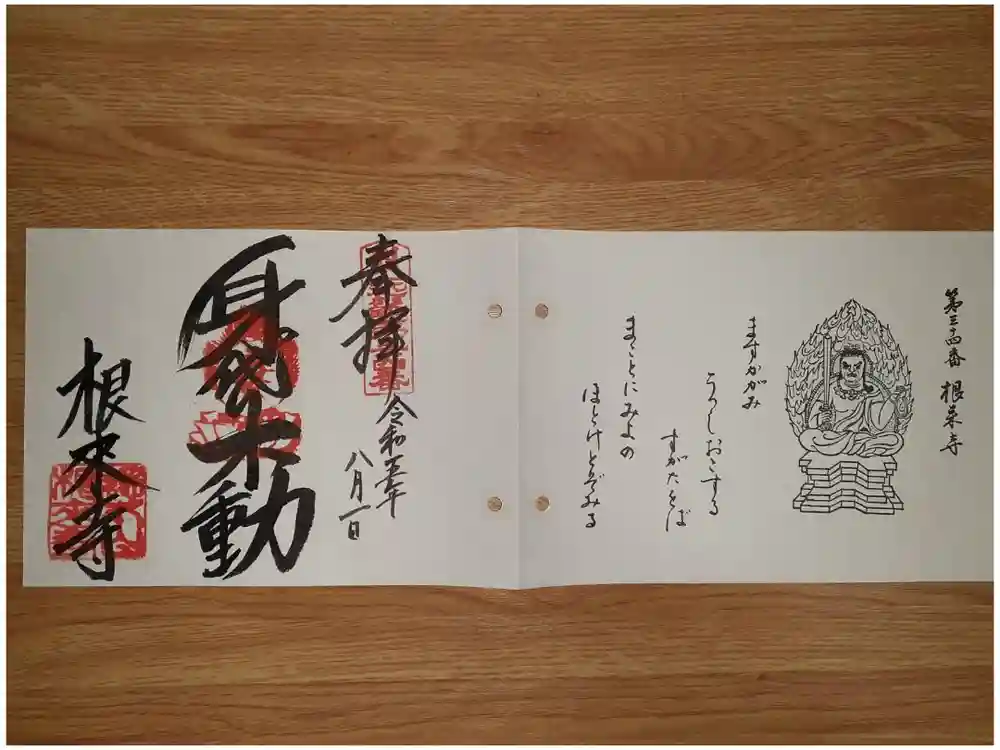 第三十四番 根来寺
ますかがみ
うつしおこする
すがたをば
まことにみよの
ほとけとぞみる
奉拝
令和五年
八月一日
身代不動
根来寺